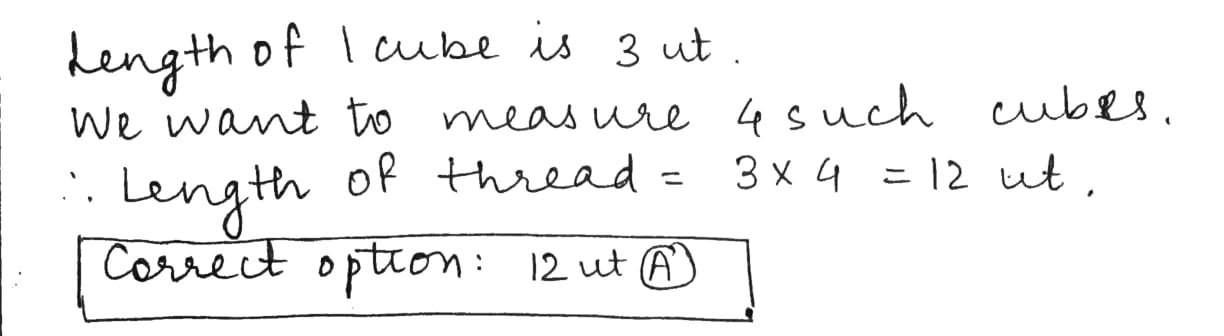 Length of 1 cube is 3 ut.
We want to measure 4 such cubes.
∴ Length of thread = 3 × 4 = 12 ut.
Correct option: 12 ut Ⓐ